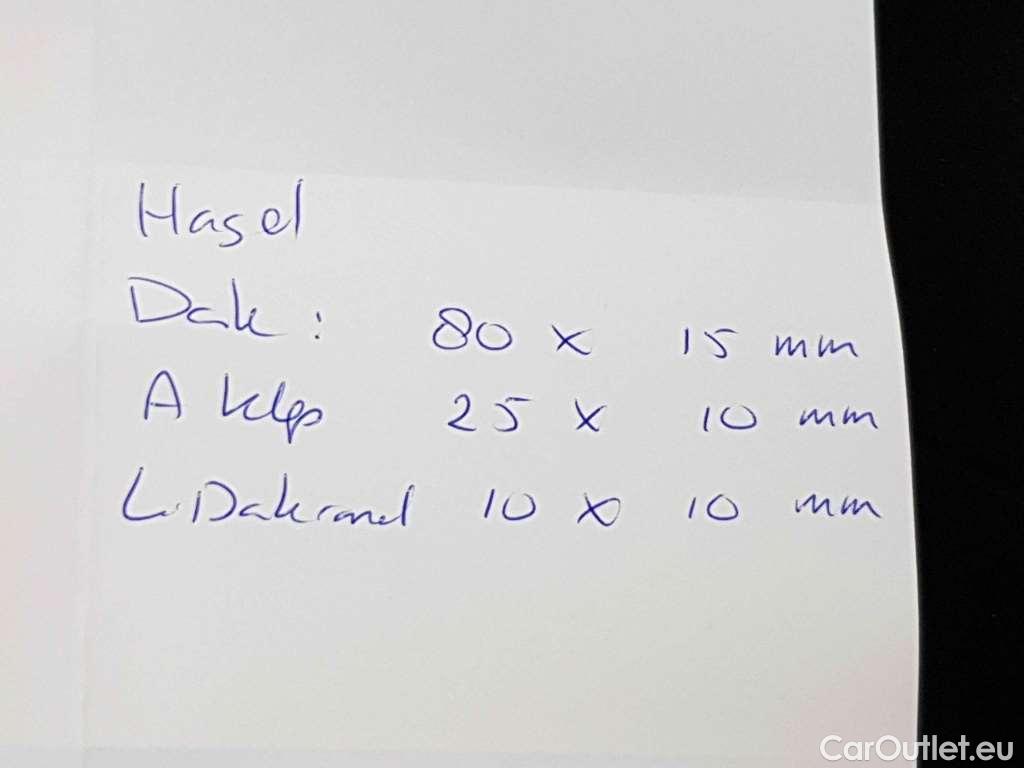 Hagel
Dak: 80 x 15 mm
A klep 25 x 10 mm
L. Dakrand 10 x 10 mm
CarOutlet.eu